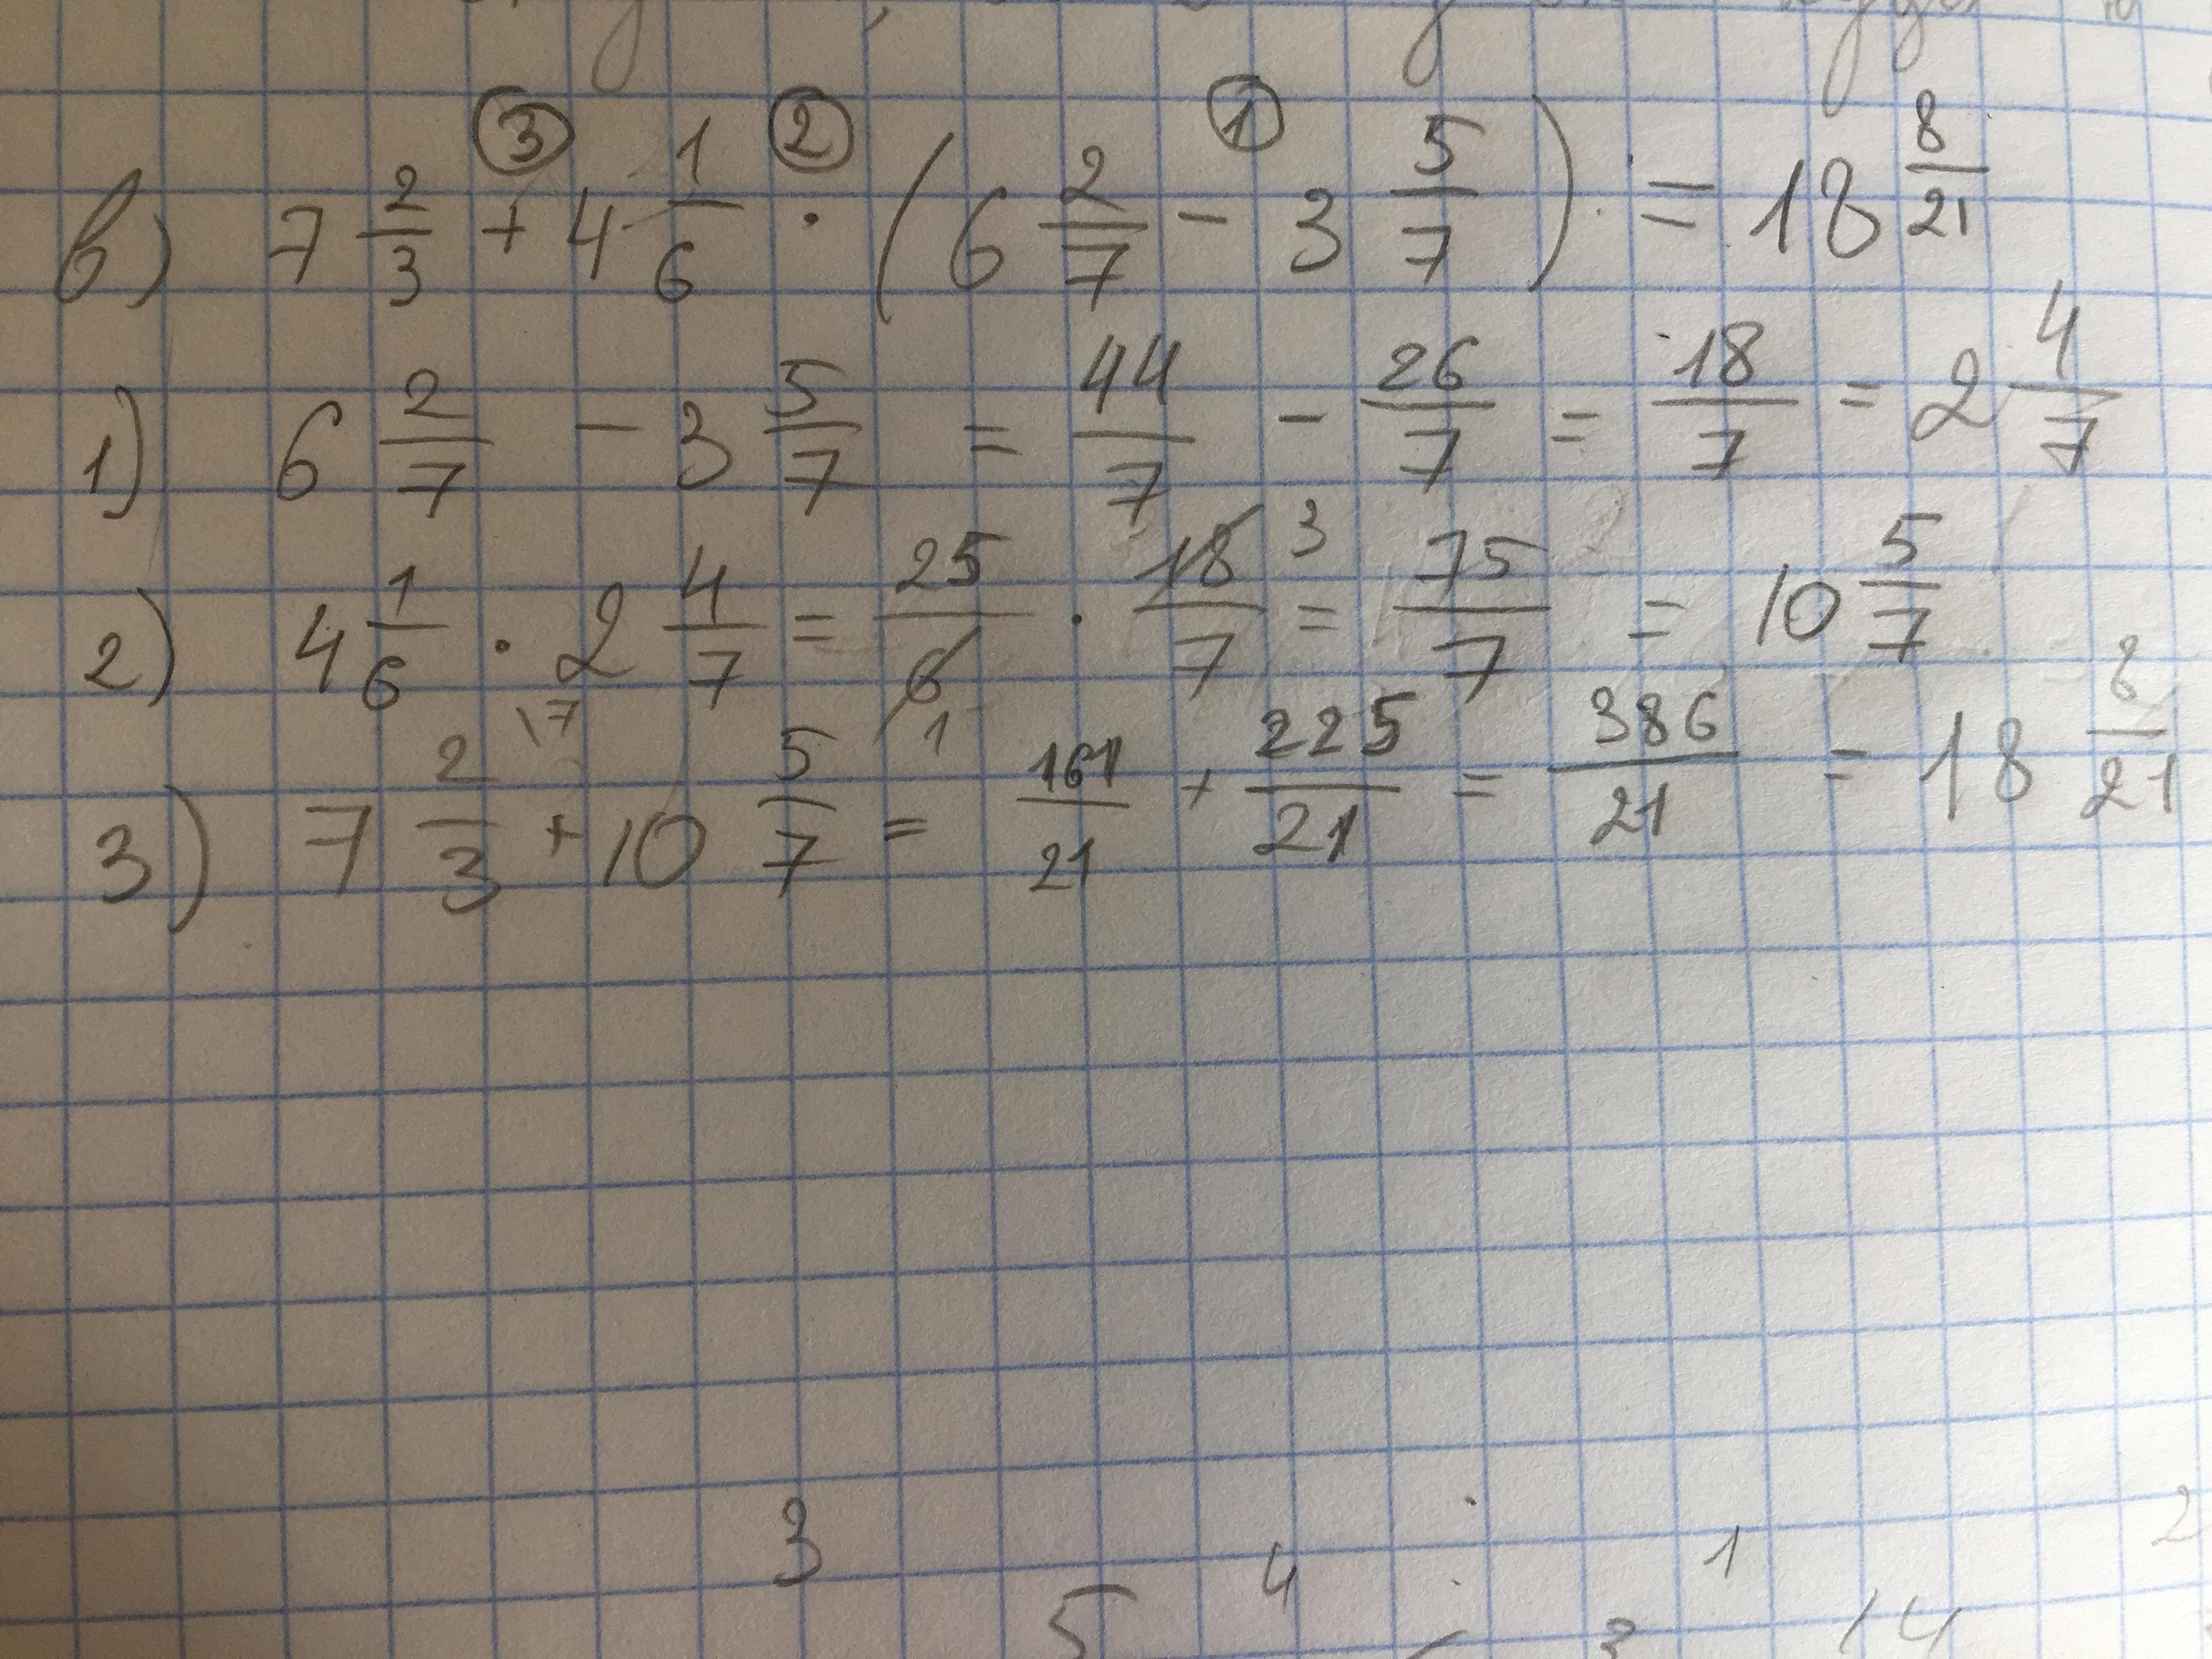 ③ ② ①
в) 7 2/3 + 4 1/6 · (6 2/7 - 3 5/7) = 18 8/21
1) 6 2/7 - 3 5/7 = 44/7 - 26/7 = 18/7 = 2 4/7
2) 4 1/6 · 2 4/7 = 25/6 1 · 18/7 3 = 75/7 = 10 5/7
3) 7 2/3 \7 + 10 5/7 = 161/21 + 225/21 = 386/21 = 18 8/21
3 4 1 2
5 3 14